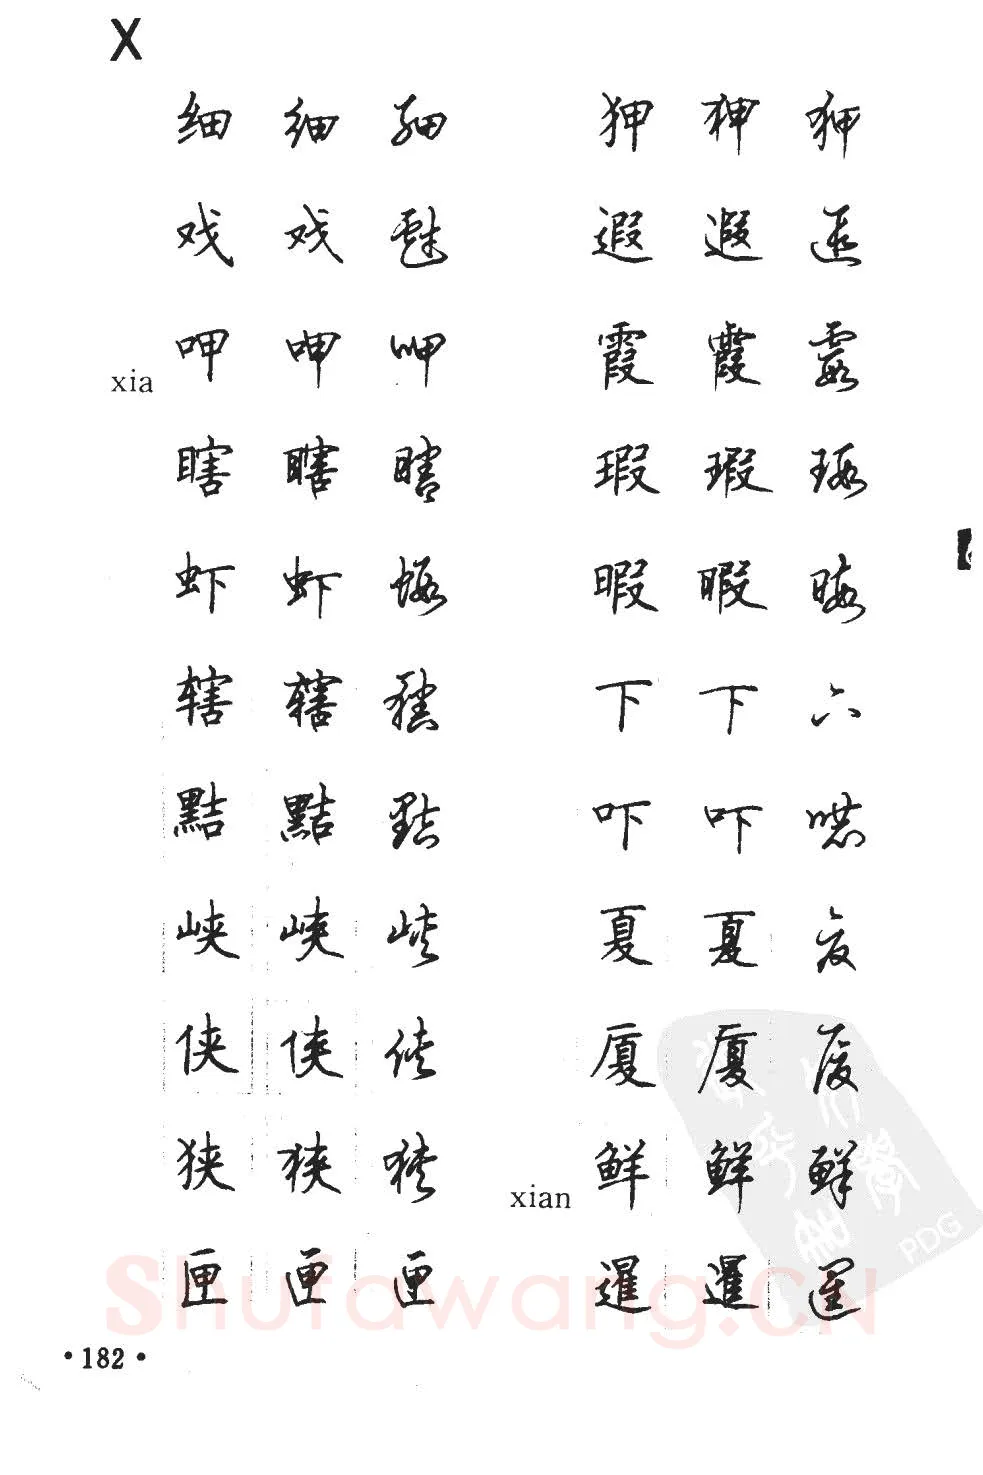 X
细 细 細
戏 戏 戲
xia
呷 呷 呷
瞎 瞎 瞎
虾 虾 蝦
辖 辖 轄
黠 黠 黠
峡 峡 峽
侠 侠 俠
狭 狭 狹
匣 匣 匣
狎 狎 狎
遐 遐 遐
霞 霞 霞
瑕 瑕 瑕
暇 暇 暇
下 下 下
吓 吓 嚇
夏 夏 夏
厦 厦 厦
xian
鲜 鲜 鮮
暹 暹 暹
·182·
Shufawang.CN
PDG